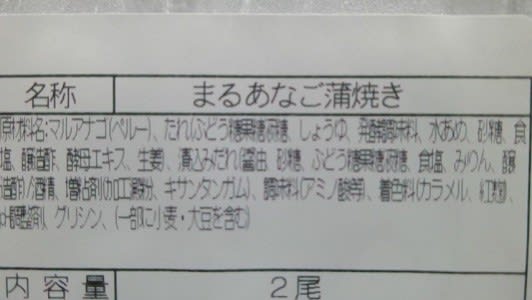 名称 まるあなご蒲焼き
原材料名:マルアナゴ(ペルー)、たれ(ぶどう糖果糖液糖、しょうゆ、発酵調味料、水あめ、砂糖、食
塩、醸造酢、酵母エキス、生姜)、漬込みだれ(醤油、砂糖、ぶどう糖果糖液糖、食塩、みりん、醸
造酢)/酒精、増粘剤(加工澱粉、キサンタンガム)、調味料(アミノ酸等)、着色料(カラメル、紅麹)、
pH調整剤、グリシン、(一部に小麦・大豆を含む)
内容量 2尾